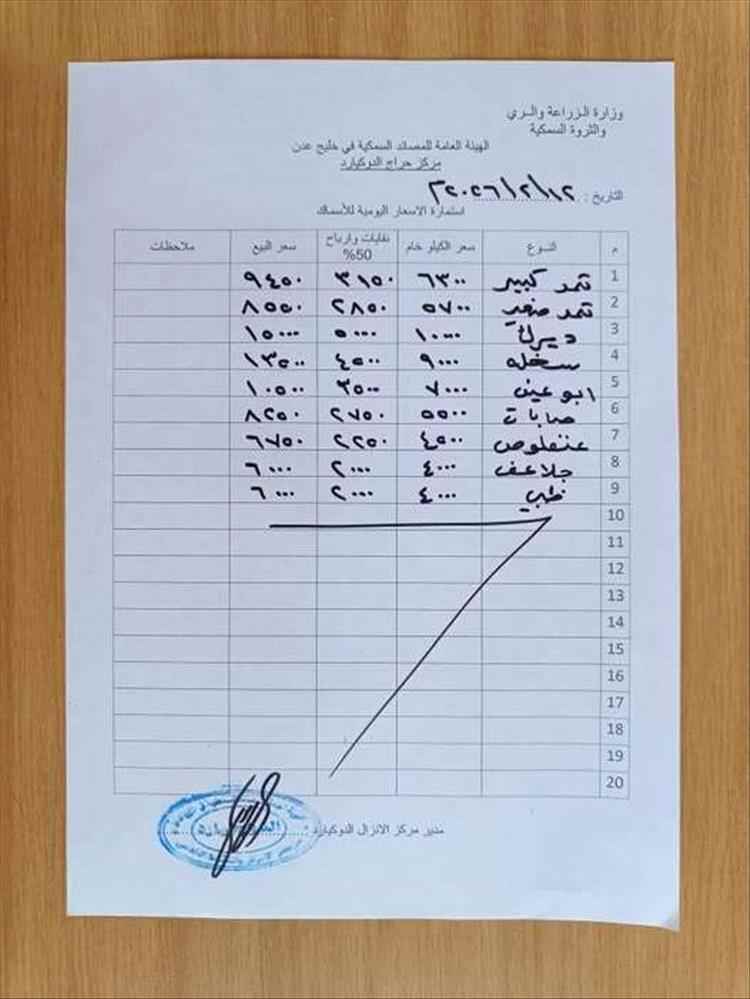 وزارة الزراعة والري
والثروة السمكية
الهيئة العامة للمصائد السمكية في خليج عدن
مركز حراج الدوكيارد
التاريخ : ٢٠٢٦/٢/١٢م
استمارة الاسعار اليومية للأسماك
م النوع سعر الكيلو خام نفايات وارباح 50% سعر البيع ملاحظات
1 ثمد كبير ٦٣٠٠ ٣١٥٠ ٩٤٥٠
2 ثمد صغير ٥٧٠٠ ٢٨٥٠ ٨٥٥٠
3 ديرك ١٠٠٠٠ ٥٠٠٠ ١٥٠٠٠
4 سخله ٩٠٠٠ ٤٥٠٠ ١٣٥٠٠
5 ابو عين ٧٠٠٠ ٣٥٠٠ ١٠٥٠٠
6 صابات ٥٥٠٠ ٢٧٥٠ ٨٢٥٠
7 عنفلوص ٤٥٠٠ ٢٢٥٠ ٦٧٥٠
8 جلاعف ٤٠٠٠ ٢٠٠٠ ٦٠٠٠
9 ظبي ٤٠٠٠ ٢٠٠٠ ٦٠٠٠
10
11
12
13
14
15
16
17
18
19
20
مدير مركز الانزال الدوكيارد :